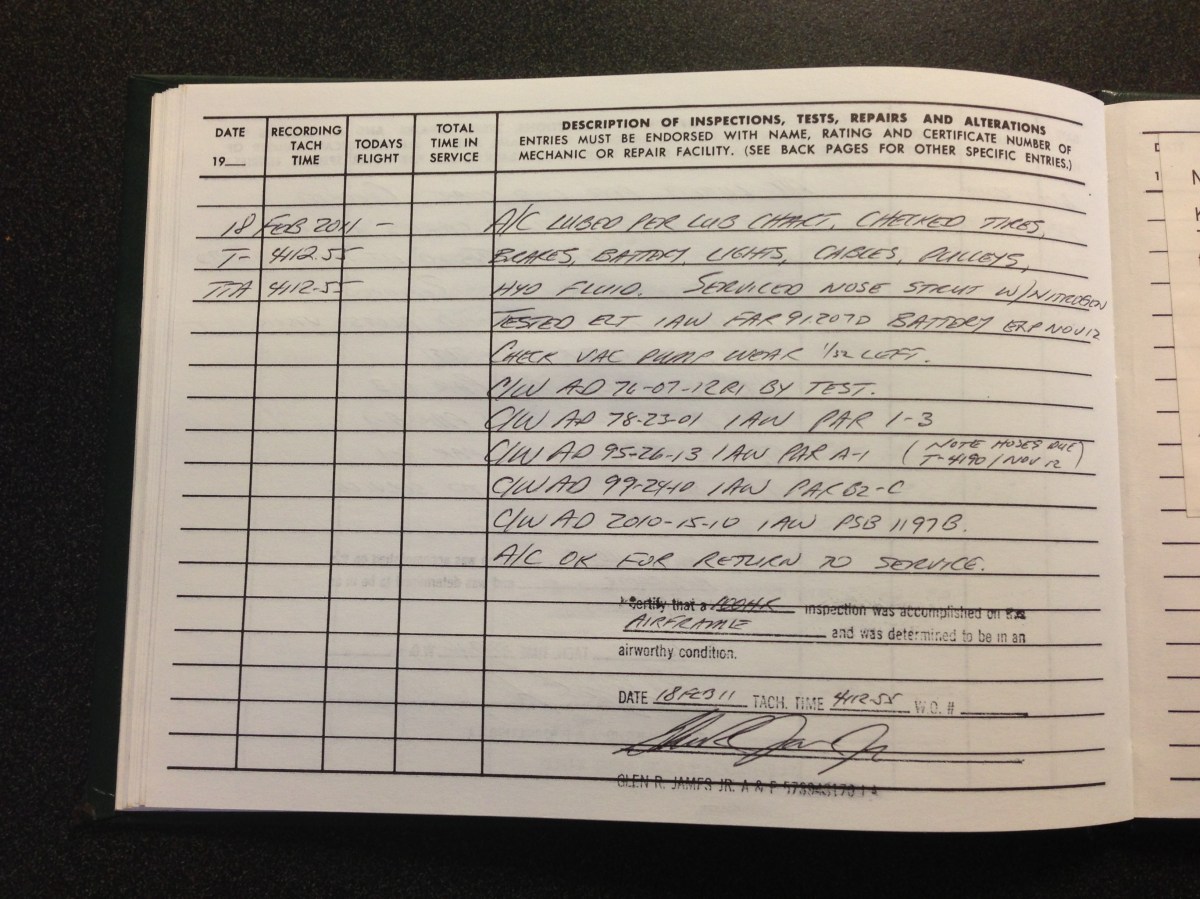 DATE
19__
RECORDING TACH TIME
TODAYS FLIGHT
TOTAL TIME IN SERVICE
DESCRIPTION OF INSPECTIONS, TESTS, REPAIRS AND ALTERATIONS
ENTRIES MUST BE ENDORSED WITH NAME, RATING AND CERTIFICATE NUMBER OF
MECHANIC OR REPAIR FACILITY. (SEE BACK PAGES FOR OTHER SPECIFIC ENTRIES.)
18 FEB 2011 - A/C LUBED PER LUB CHART. CHECKED TIRES,
T- 4112.55 BRAKES, BATTERY, LIGHTS, CABLES, PULLEYS,
TTA 4112.55 HYD FLUID. SERVICED NOSE STRUT W/NITROGEN
TESTED ELT IAW FAR 91.207D BATTERY EXP NOV 12
CHECK VAC PUMP WEAR 1/32 LEFT.
C/W AD 76-07-12R1 BY TEST.
C/W AD 78-23-01 IAW PAR 1-3
C/W AD 95-26-13 IAW PAR A-1 (NOTE HOSES DUE
T-4190/NOV 12)
C/W AD 99-24-10 IAW PAR B2-C
C/W AD 2010-15-10 IAW PSB 1197B.
A/C OK FOR RETURN TO SERVICE.
certify that a 100HR inspection was accomplished on
AIRFRAME and was determined to be in an
airworthy condition.
DATE 18 FEB 11 TACH. TIME 4112.55 W.O. #
GLEN R. JAMES JR. A & P